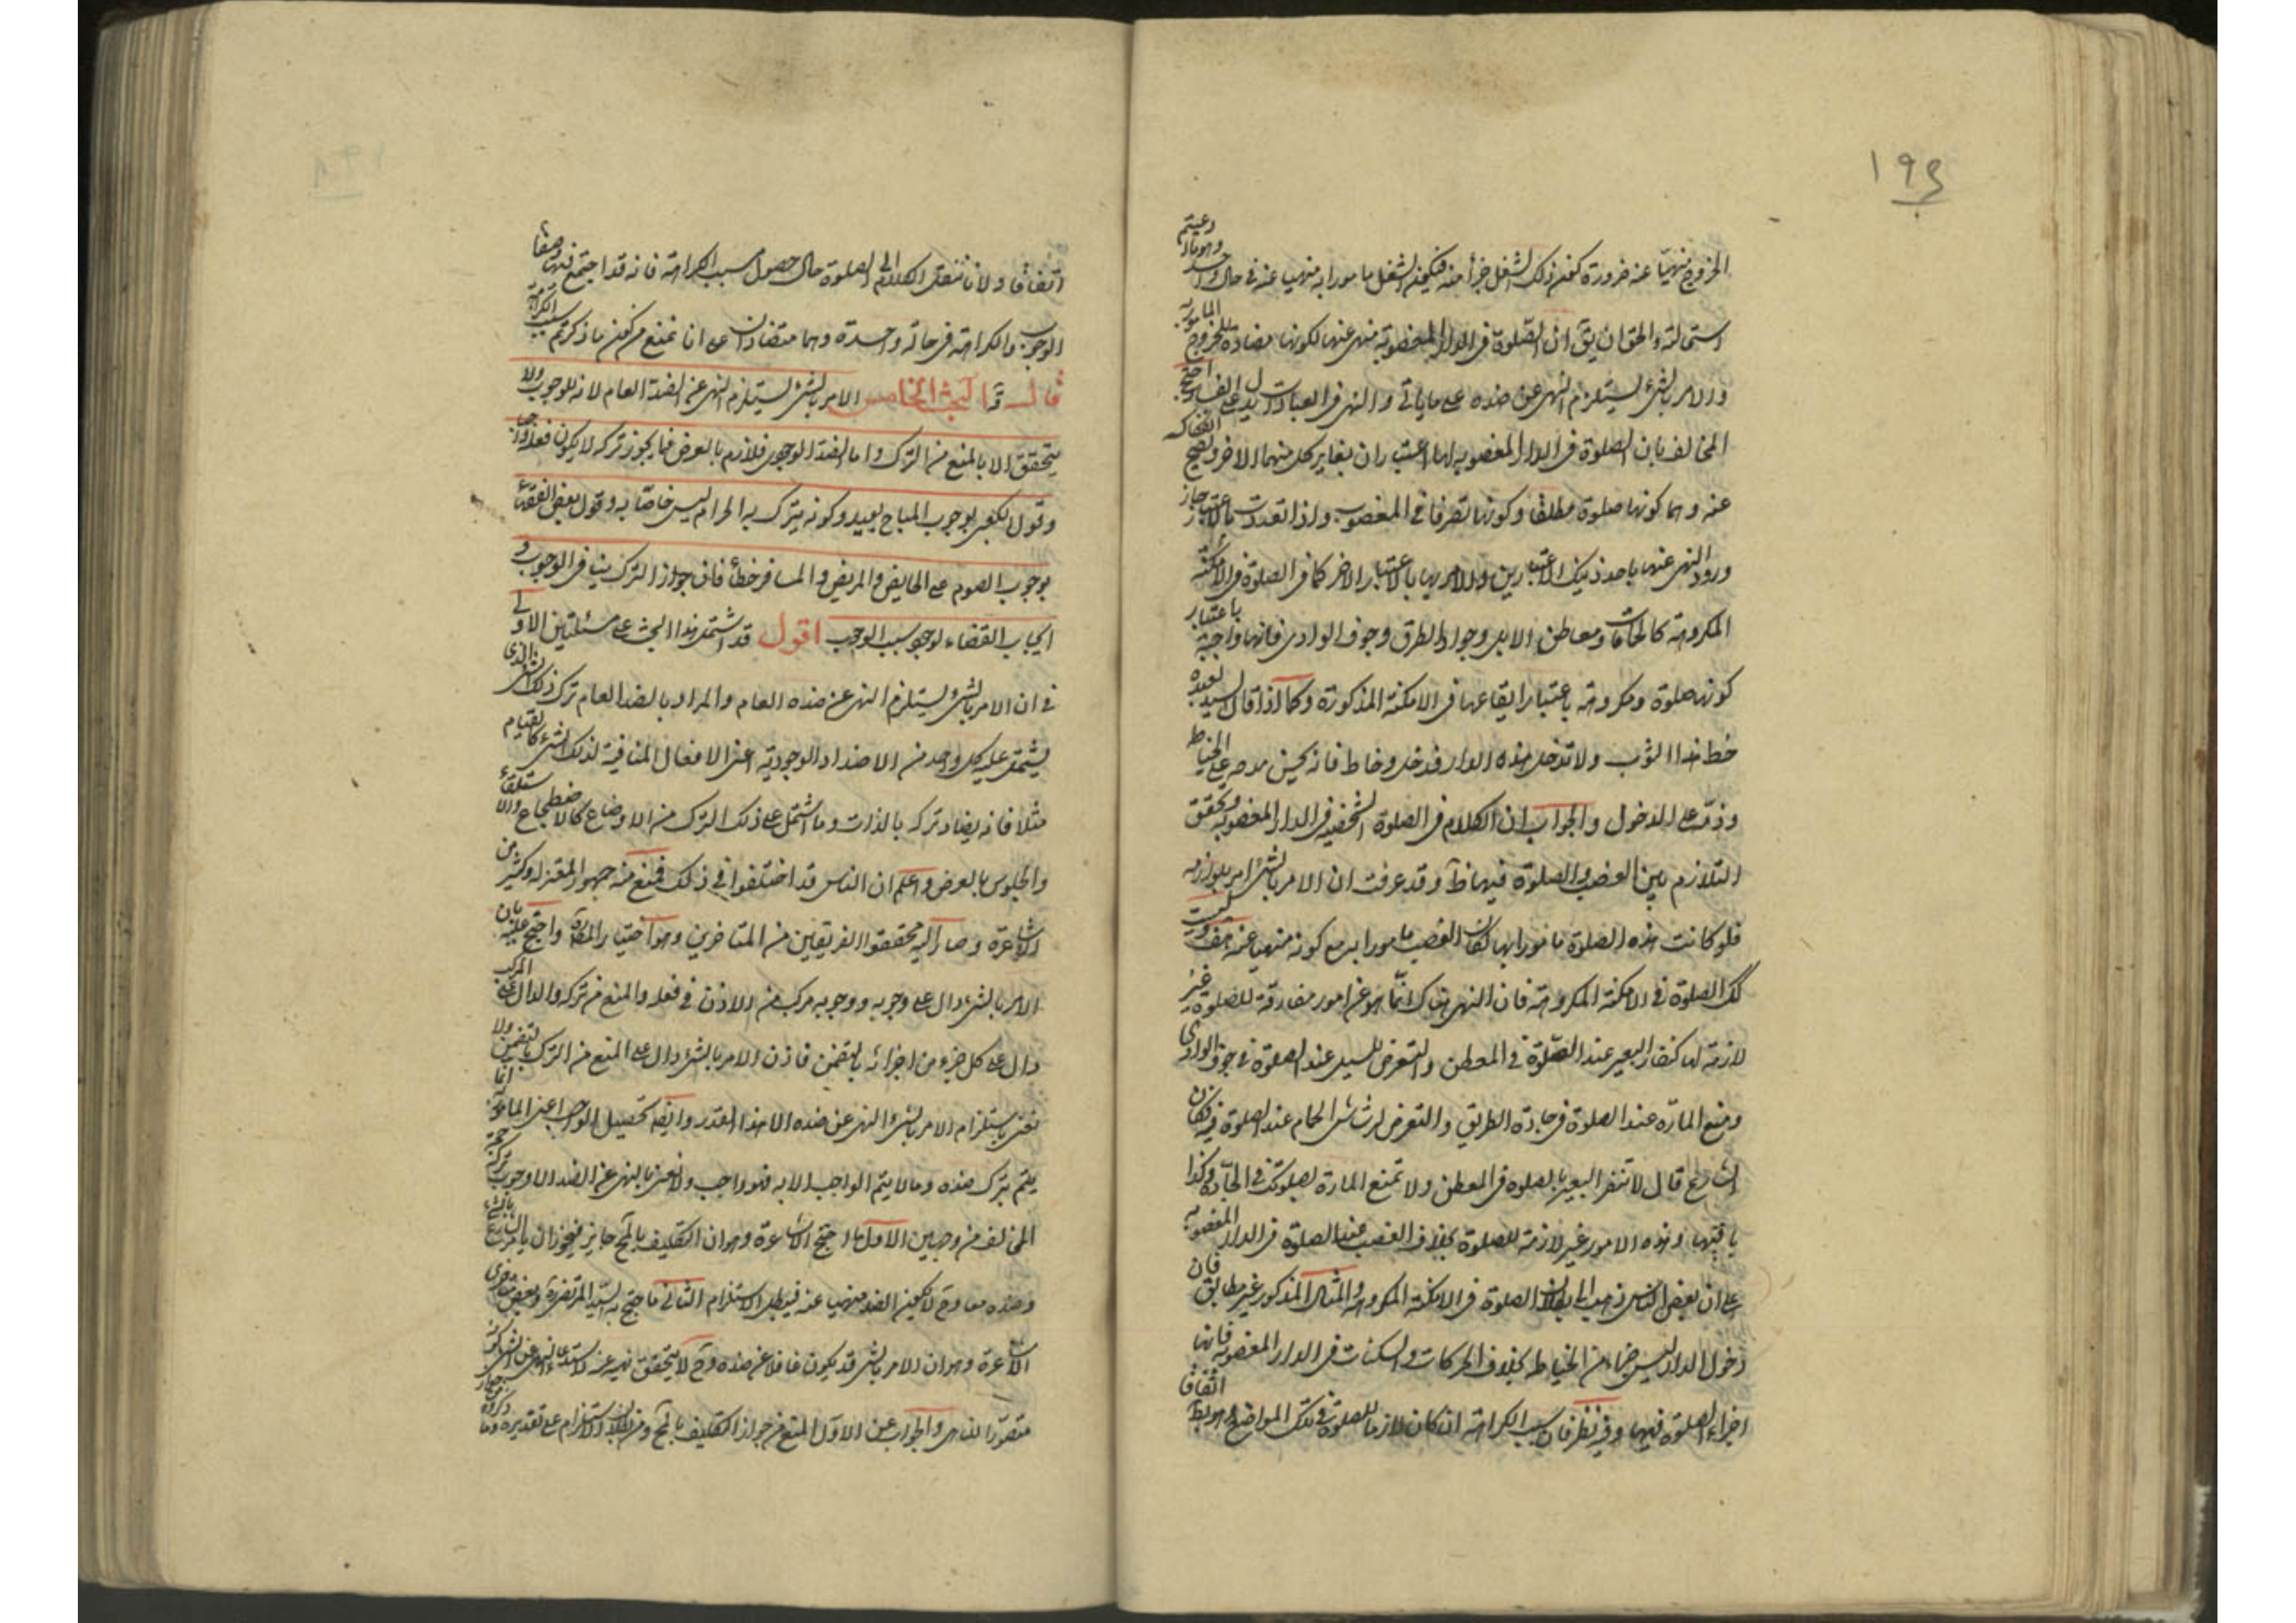 ١٩٤
الخروج منهيّا عنه ضرورة كون ذلك الشغل جزأ منه فيكون الشغل مامورا به منهيا عنه في حال واحد وهو ما ادعيتم
استحالته والحق ان يق ان الصّلوة فى الدار المغصوبة منهى عنها لكونها مضادة للخروج المامور به
والامر بالشىء يستلزم النهى عن ضده على ما ياتى والنهى فى العبادات يدل على الفساد احتج
المخالف بان الصلوة فى الدار المغصوبة لها اعتباران يغاير كل منهما الاخر ويصح انفكاكه
عنه وهما كونها صلوة مطلقا وكونها تصرفا في المغصوب واذا تعددت الاعتبار جاز
ورود النهى عنها باحد ذينك الاعتبارين والامر بها بالاعتبار الاخر كما فى الصلوة فى الامكنة
المكروهة كالحمامات ومعاطن الابل وجواد الطرق وجوف الوادى فانها واجبة باعتبار
كونها صلوة ومكروهة باعتبار ايقاعها فى الامكنة المذكورة وكما اذا قال السيد لعبده
خط هذا الثوب ولا تدخل هذه الدار فدخل وخاط فانه يحسن مدحه على الخياطة
وذمّه على الدخول والجواب ان الكلام فى الصلوة الشخصية فى الدار المغصوبة وتحقق
التلازم بين الغصب والصلوة فيها ظ وقد عرفت ان الامر بالشىء امر بلوازمه
فلو كانت هذه الصلوة مامورا بها لكان الغصب مامورا به مع كونه منهيا عنه هف وليست
كك الصلوة في الامكنة المكروهة فان النهى هناك انّما هو عن امور مفارقة للصلوة غير
لازمة لها كنفار البعير عند الصّلوة في المعطن والتعرض للسيل عند الصلوة في جوف الوادى
ومنع المارّة عند الصلوة فى جادة الطريق والتعرض لرشاش الحمام عند الصلوة فيه فكان
الشارع قال لا تنفر البعير بالصلوة فى المعطن ولا تمنع المارة بصلوتك في الجادّة وكذا
باقيها وهذه الامور غير لازمة للصلوة بخلاف الغصب عند الصلوة فى الدار المغصوبة
على ان بعض الناس ذهب الى بطلان الصلوة فى الامكنة المكروهة والمثال المذكور غير مطابق فان
دخول الدار ليس جزءا من الخياطة بخلاف الحركات والسكنات فى الدار المغصوبة فانها
اجزاء الصلوة فيها وفيه نظر فان سبب الكراهة ان كان لازما للصلوة في تلك المواضع اتفاقا
اتفاقا ولانا ننقل الكلام الى الصلوة حال حصول سبب الكراهة فانه قد اجتمع فيها وصفا
الوجوب والكراهة فى حالة واحدة وهما متضادان على انا نمنع من كون ما ذكرتم سبب الكراهة
قال قه البحث الخامس الامر بالشىء يستلزم النهى عن الضد العام لانه للوجوب ولا
يتحقق الا بالمنع من الترك واما الضد الوجودى فلازم بالعرض فما يجوز تركه لا يكون فعله واجبا
وقول الكعبى بوجوب المباح بعيد وكونه يترك به الحرام ليس خاصّا به وقول بعض الفقهاء
بوجوب الصوم على الحايض والمريض والمسافر خطأ فان جواز الترك ينافى الوجوب و
ايجاب القضاء لوجود سبب الوجوب اقول قد اشتمل هذا البحث على مسئلتين الاولى
في ان الامر بالشىء يستلزم النهى عن ضده العام والمراد بالضد العام ترك ذلك الشىء الذى
يشتمل عليه كل واحد من الاضداد الوجودية اعنى الافعال المنافية لذلك الشىء كالقيام
مثلا فانه يضاد تركه بالذات وما اشتمل على ذلك الترك من الاوضاع كالاضطجاع والاستلقاء
والجلوس بالعرض واعلم ان الناس قد اختلفوا في ذلك فمنع منه جمهور المعتزلة وكثير من
الاشاعرة وصار اليه محققوا الفريقين من المتاخرين وهو اختيار المصنف واحتج عليه بان
الامر بالشىء دال على وجوبه ووجوبه مركب من الاذن في فعله والمنع من تركه والدال على المركب
دال على كل جزء من اجزائه بالتضمن فاذن الامر بالشىء دال على المنع من الترك بالتضمن ولا
نعنى باستلزام الامر بالشىء النهى عن ضده الا هذا القدر وايضه تحصيل الواجب اعنى المامور به انما
يتم بترك ضده وما لا يتم الواجب الا به فهو واجب ولا نعنى بالنهى عن الضد الا وجوب تركه
المخالف من وجهين الاول ما احتج الاشاعرة وهو ان التكليف بالمح جايز فيجوز ان يامر الشارع بالشىء
وضده معا وح لا يكون الضد منهيا عنه فيبطل الاستلزام الثانى ما احتج به السيد المرتضى وبعض متاخرى
الاشاعرة وهو ان الامر بالشىء قد يكون غافلا عن ضده وح لا يتحقق نهيه عنه لاستدعاء النهى عن الشىء كونه
متصوّرا للناهى والجواب عن الاول المنع من جواز التكليف بالمح ومن بطلان الاستلزام على تقديره وما ذكروه